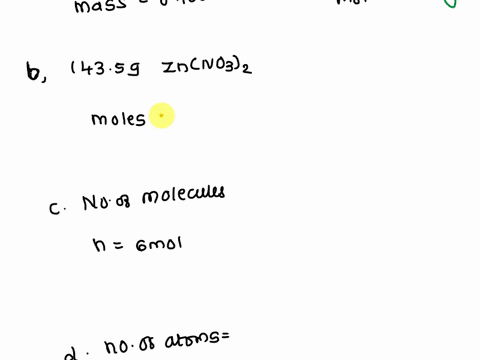 mass =
b, 143.5g Zn(NO3)2
moles
c. No. of molecules
n = 6mol
d. no. of atoms=